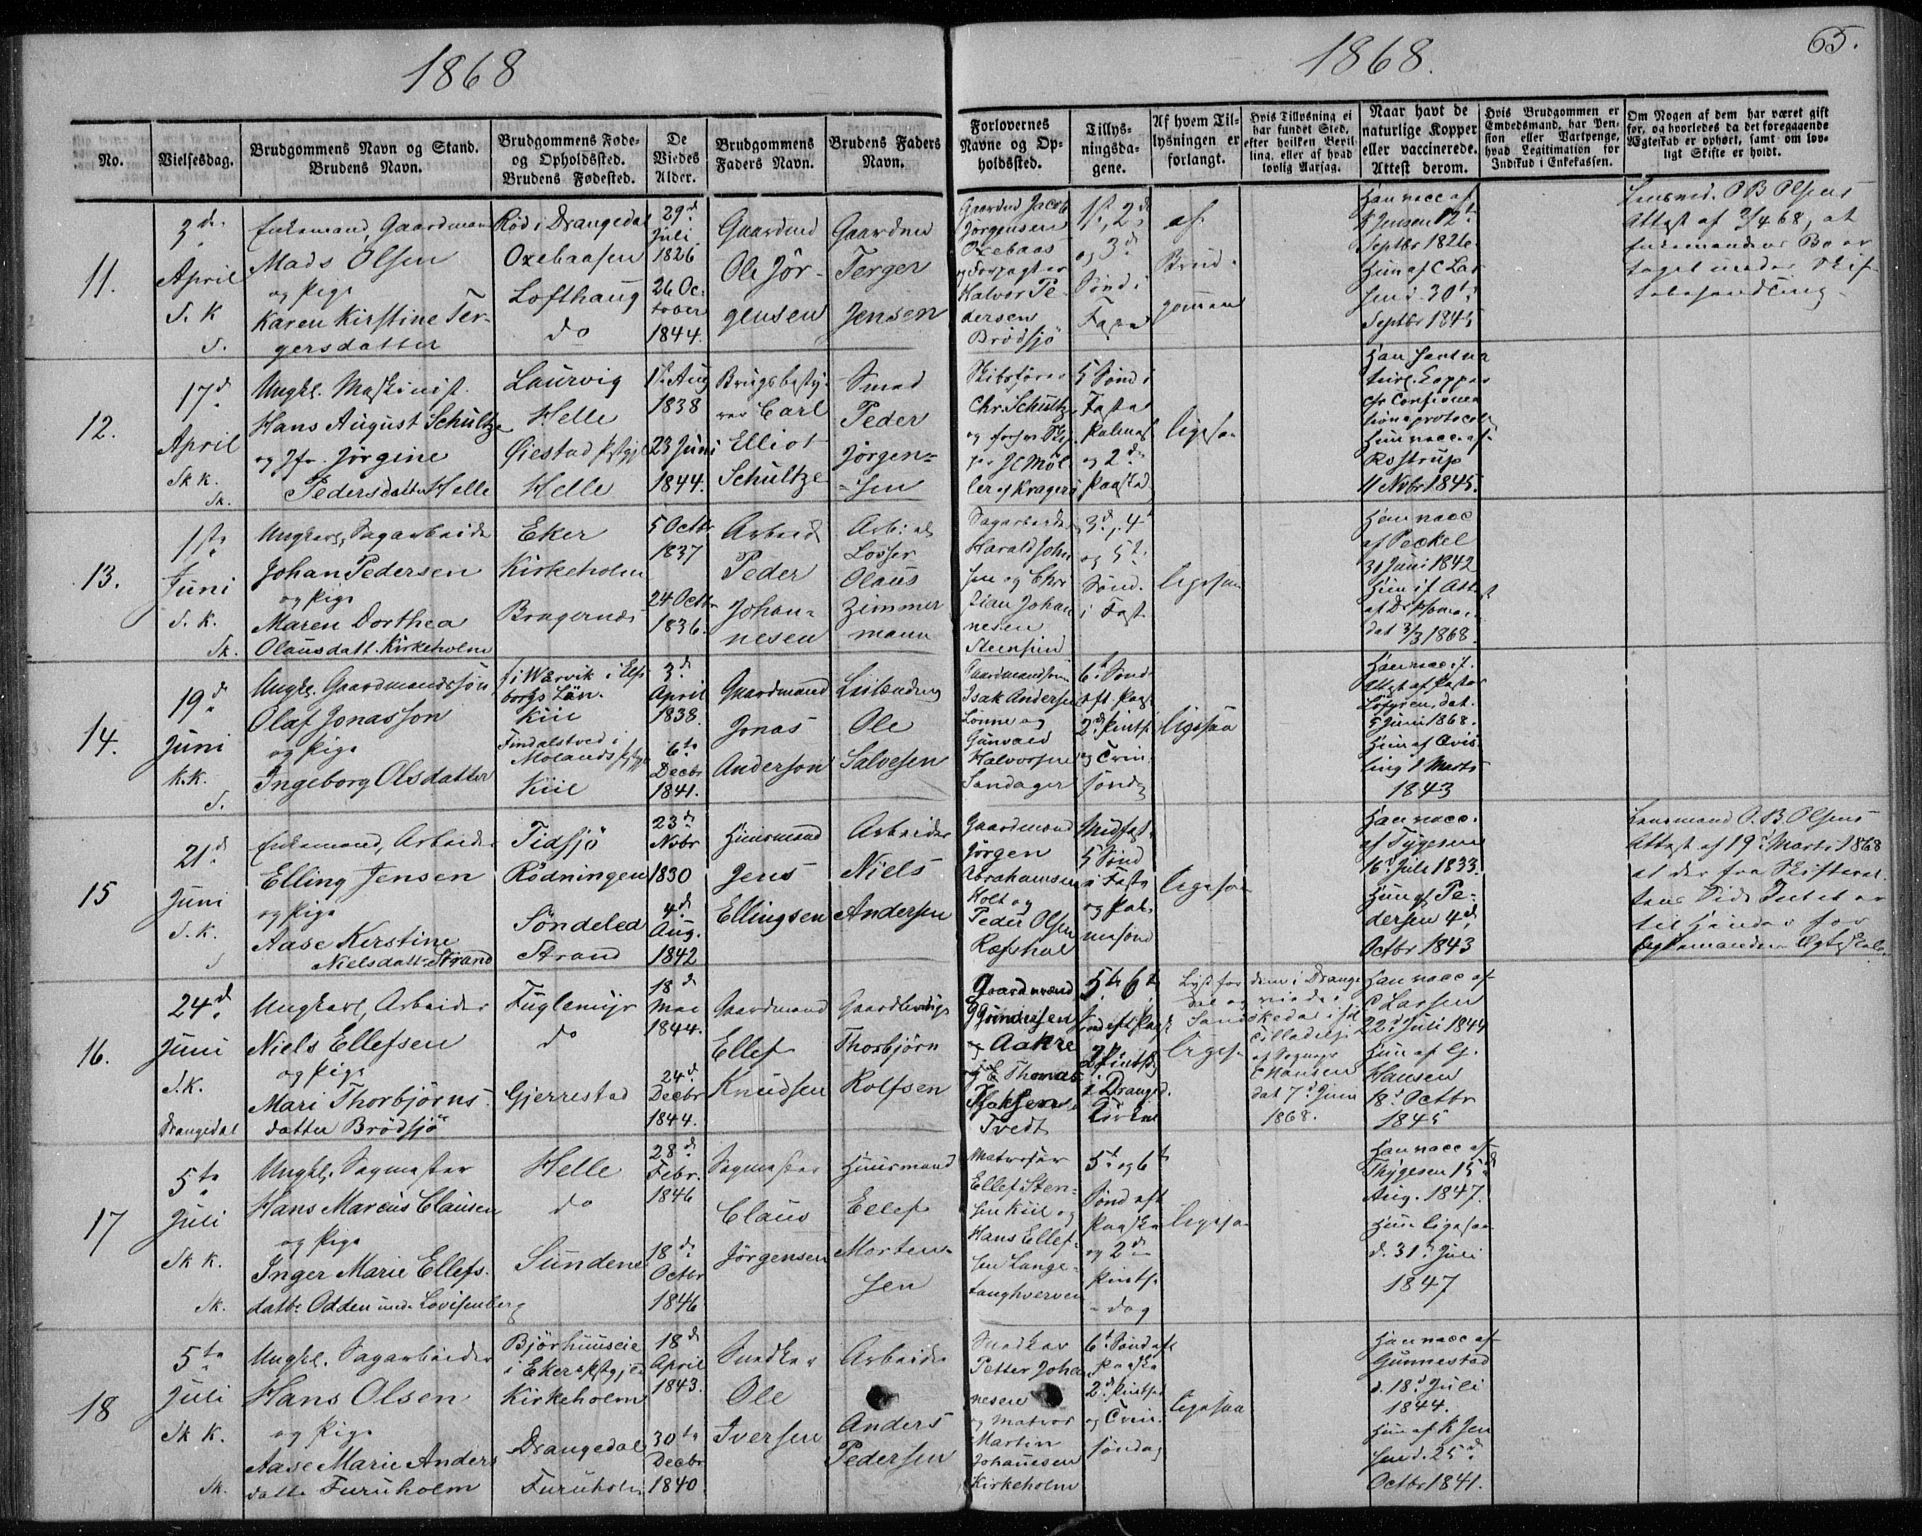 1868
1868.
65.
No.
Vielsesdag.
Brudgommens Navn og Stand.
Brudens Navn.
Brudgommens Føde-
og Opholdssted.
Brudens Fødested.
De
Viedes
Alder.
Brudgommens
Faders Navn.
Brudens Faders
Navn.
Forlovernes
Navne og Op-
holdssted.
Tillys-
ningsda-
gene.
Af hvem Til-
lysningen er
forlangt.
Hvis Tillysning ei
har fundet Sted,
efter hvilken Bevil-
ling, eller af hvad
lovlig Aarsag.
Naar havt de
naturlige Kopper
eller vaccinerede.
Attest derom.
Hvis Brudgommen er
Embedsmand, har Pen-
sion eller Vartpenge,
hvad Legitimation for
Indskud i Enkekassen.
Om Nogen af dem har været gift
før, og hvorledes da det foregaaende
Ægteskab er ophørt, samt om lov-
ligt Skifte er holdt.
11.
3d
April
S. K
S.
Enkemand, Gaardmand
Mads Olsen
og Pige
Karen Kirstine Ter-
gersdatter
Rød i Drangedal
Oxebaasen
Lofthaug
do
29d
Juli
1826
26 Oc-
tober
1844.
Gaardmd
Ole Jör-
gensen
Gaardmd
Terger
Jensen
Gaardmd Jacob
Jörgensen
Oxebaas
og Forpagter
Halvor Pe-
dersen
Brödsjö
1st, 2d
og 3d
Sönd i
Faste
af
Brud-
gommen
Han vacc af
P Jensen 12t
Septbr 1826
Hun af C Lar
sen d. 30t
Septbr 1845
Lensmd. O B Olsens
Attest af 2/4 68, at
Enkemandens Bo er
taget under Skif-
tebehandling
12.
17d
April
Sk K.
Sk.
Ungkl. Maskinist
Hans August Schultze
og Jfr. Jörgine
Pedersdatter Helle
Laurvig
Helle
Øiestad Pstgjl
Helle
1st Aug
1838
23 Juni
1844.
Brugsbesty-
rer Carl
Elliot
Schultze
Smed
Peder
Jörgen-
sen
Skibsfører
Chr. Schultz
og
J C Möl
ler af Kragerö
5 Sönd i
Faste
Palmes
og 2d
Paasked
ligesaa
Han havt na
turl. Kopper
Confirma
tionsprotocoll
Hun vacc. af
Rostrup
11 Nvbr 1845.
13.
1ste
Juni
S. K.
Sk.
Ungkarl, Sagarbeider
Johan Pedersen
og Pige
Maren Dorthea
Olausdatt. Kirkeholm
Eker
Kirkeholm
Bragernæs
5 Octbr
1837
24 Octbr
1836.
Arbeid
Peder
Johan-
nesen
Arb:
Losser
Olaus
Zimmer
mann
Sagarbeider
Harald John
sen og Chri
stian Johan
nesen
3d, 4t
og 5t
Sönd.
i Fast.
ligesaa
Han vacc
af Peckel
30 Juni 1842
Hun if Attest
af
dat 3/3 1868.
14.
19d
Juni
K.K.
S.
Ungkl. Gaardmandssön
Olaf Jonasson
og Pige
Ingeborg Olsdatter
i Elfs
borgs Län.
Kiil
i
Molands Pstgjl
Kiil
3d
April
1838.
6te
Decbr
1841.
Gaardmand
Jonas
Anderson
Ole
Salvesen
Gaardmandssön
Isak Andersen
Lönne og
Gunvald
Halvorsen
Sandager
6t Sönd
eft Paas
2d Pintsd
og Trin.
sönd.
ligesaa
Han vacc. if.
Attest af Pastor
Löfgren, dat.
5 Juni 1868.
Hun af
1 Marts
1843
15
21d
Juni
S. K.
S
Enkemand, Arbeider
Elling Jensen
og Pige
Aase Kirstine
Nielsdatt. Strand
Tidsjö
Rödningen
Söndeled
Strand
23de
Nvbr
1830
4d
Aug.
1842
Huusmand
Jens
Ellingsen
Arbeider
Niels
Andersen
Gaardmand
Jörgen
Abrahamsen
Holt og
Peder Olsen
Ræfshal
Midfast.
5 Sönd
i Faste
og Pal-
mesönd
ligesaa
Han vacc.
af Tygesen
16d Juli 1833.
Hun af Pe-
dersen 4d
Octbr 1843
Lensmand O. B Olsens
Attest af 19d Marts 1868
at der fra Skifteret-
tens Side Intet er
til Hinder for
Enkemandens Ægteskab.
16.
24d
Juni
S.K.
Drangedal
Ungkarl, Arbeider
Niels Ellefsen
og Pige
Mari Thorbjörns-
datter Brödsjö
Fuglemyr
do
Gjerrestad
18d
Mai
1844.
24d
Decbr
1844.
Gaardmand
Ellef
Knudsen
Thorbjörn
Rolfsen
Gaardmænd
G Gundersen
Aakre
og E Thomas
Tvedt
5te 6te
Sönd eft Paask
2d Pintsd
i Dranged
Kirke
ligesaa
Lyst for dem i Drange
dal og viede i
Sandøkedal if
Tilladelse
af Sogneprest
E Hansen
dat 7d Juni
1868.
Han vacc af
C Larsen
22d Juli 1844
Hun af G.
Hansen
18d Octbr
1845
17
5te
Juli
Sk K.
Sk.
Ungkl. Sagmester
Hans Marcus Clausen
og Pige
Inger Marie Ellefs-
datter Odden und. Lovisenberg
Helle
do
Sundene
28d
Febr.
1846
18d
Octbr
1846
Sagmester
Claus
Jörgensen
Huusmand
Ellef
Morten-
sen
Matroser
Ellef Sten-
sen Kiil og
Hans Ellef-
sen Lange-
tanghverven
5te og 6te
Sönd eft
Paaske
og 2d
Pintse-
dag
ligesaa
Han vacc af
Thygesen 15d
Aug. 1847.
Hun ligesaa
d. 31te Juli
1847
18
5te
Juli
Sk K.
Sk.
Ungkl. Sagarbeider
Hans Olsen
og Pige
Aase Marie Anders
datter Furuholm
Bjørhuuseie
i Eker Pstgjld
Kirkeholm
Drangedal
Furuholm
18d
April
1843.
30te
Decbr
1840
Snedker
Ole
Iversen
Arbeider
Anders
Pedersen
Snedker
Petter Joha
nesen
og Matros
Martin
Johannesen
Kirkeholm
6t Sönd eft
Paaske
2d Pintsd
og Trin.
söndag
ligesaa
Han vacc af
Gunnestad
d. 18d Juli
1844.
Hun af P Jen
sen d. 25d
Octbr 1841.